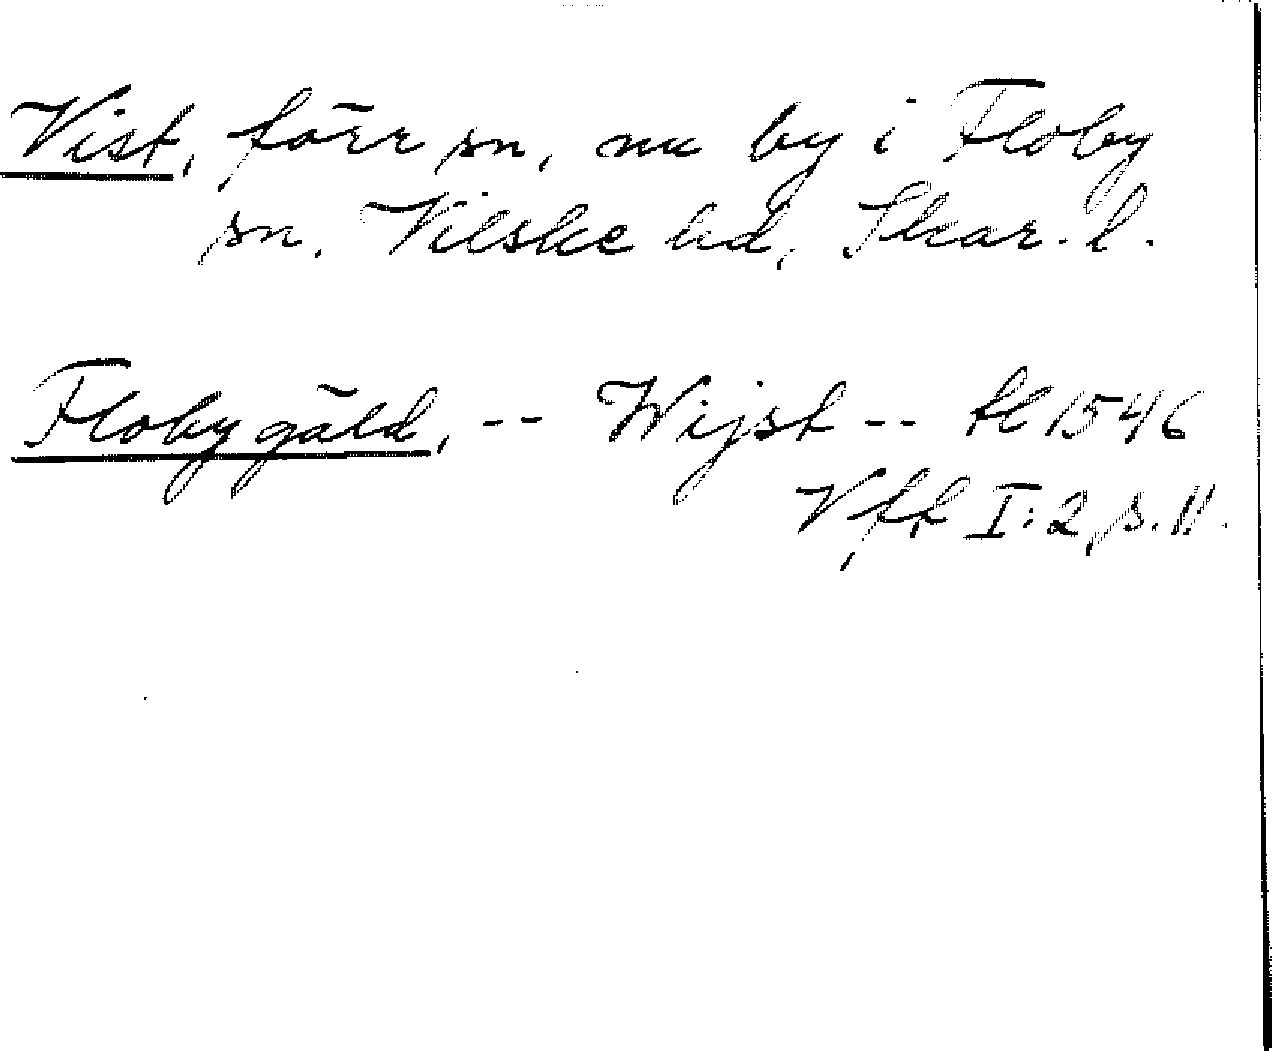 Vist, förr sn, nu by i Floby
sn. Vilske hd, Skar. l.
Floby gäld, -- Wijst -- tl 1546
Vft I:2, s. 11.